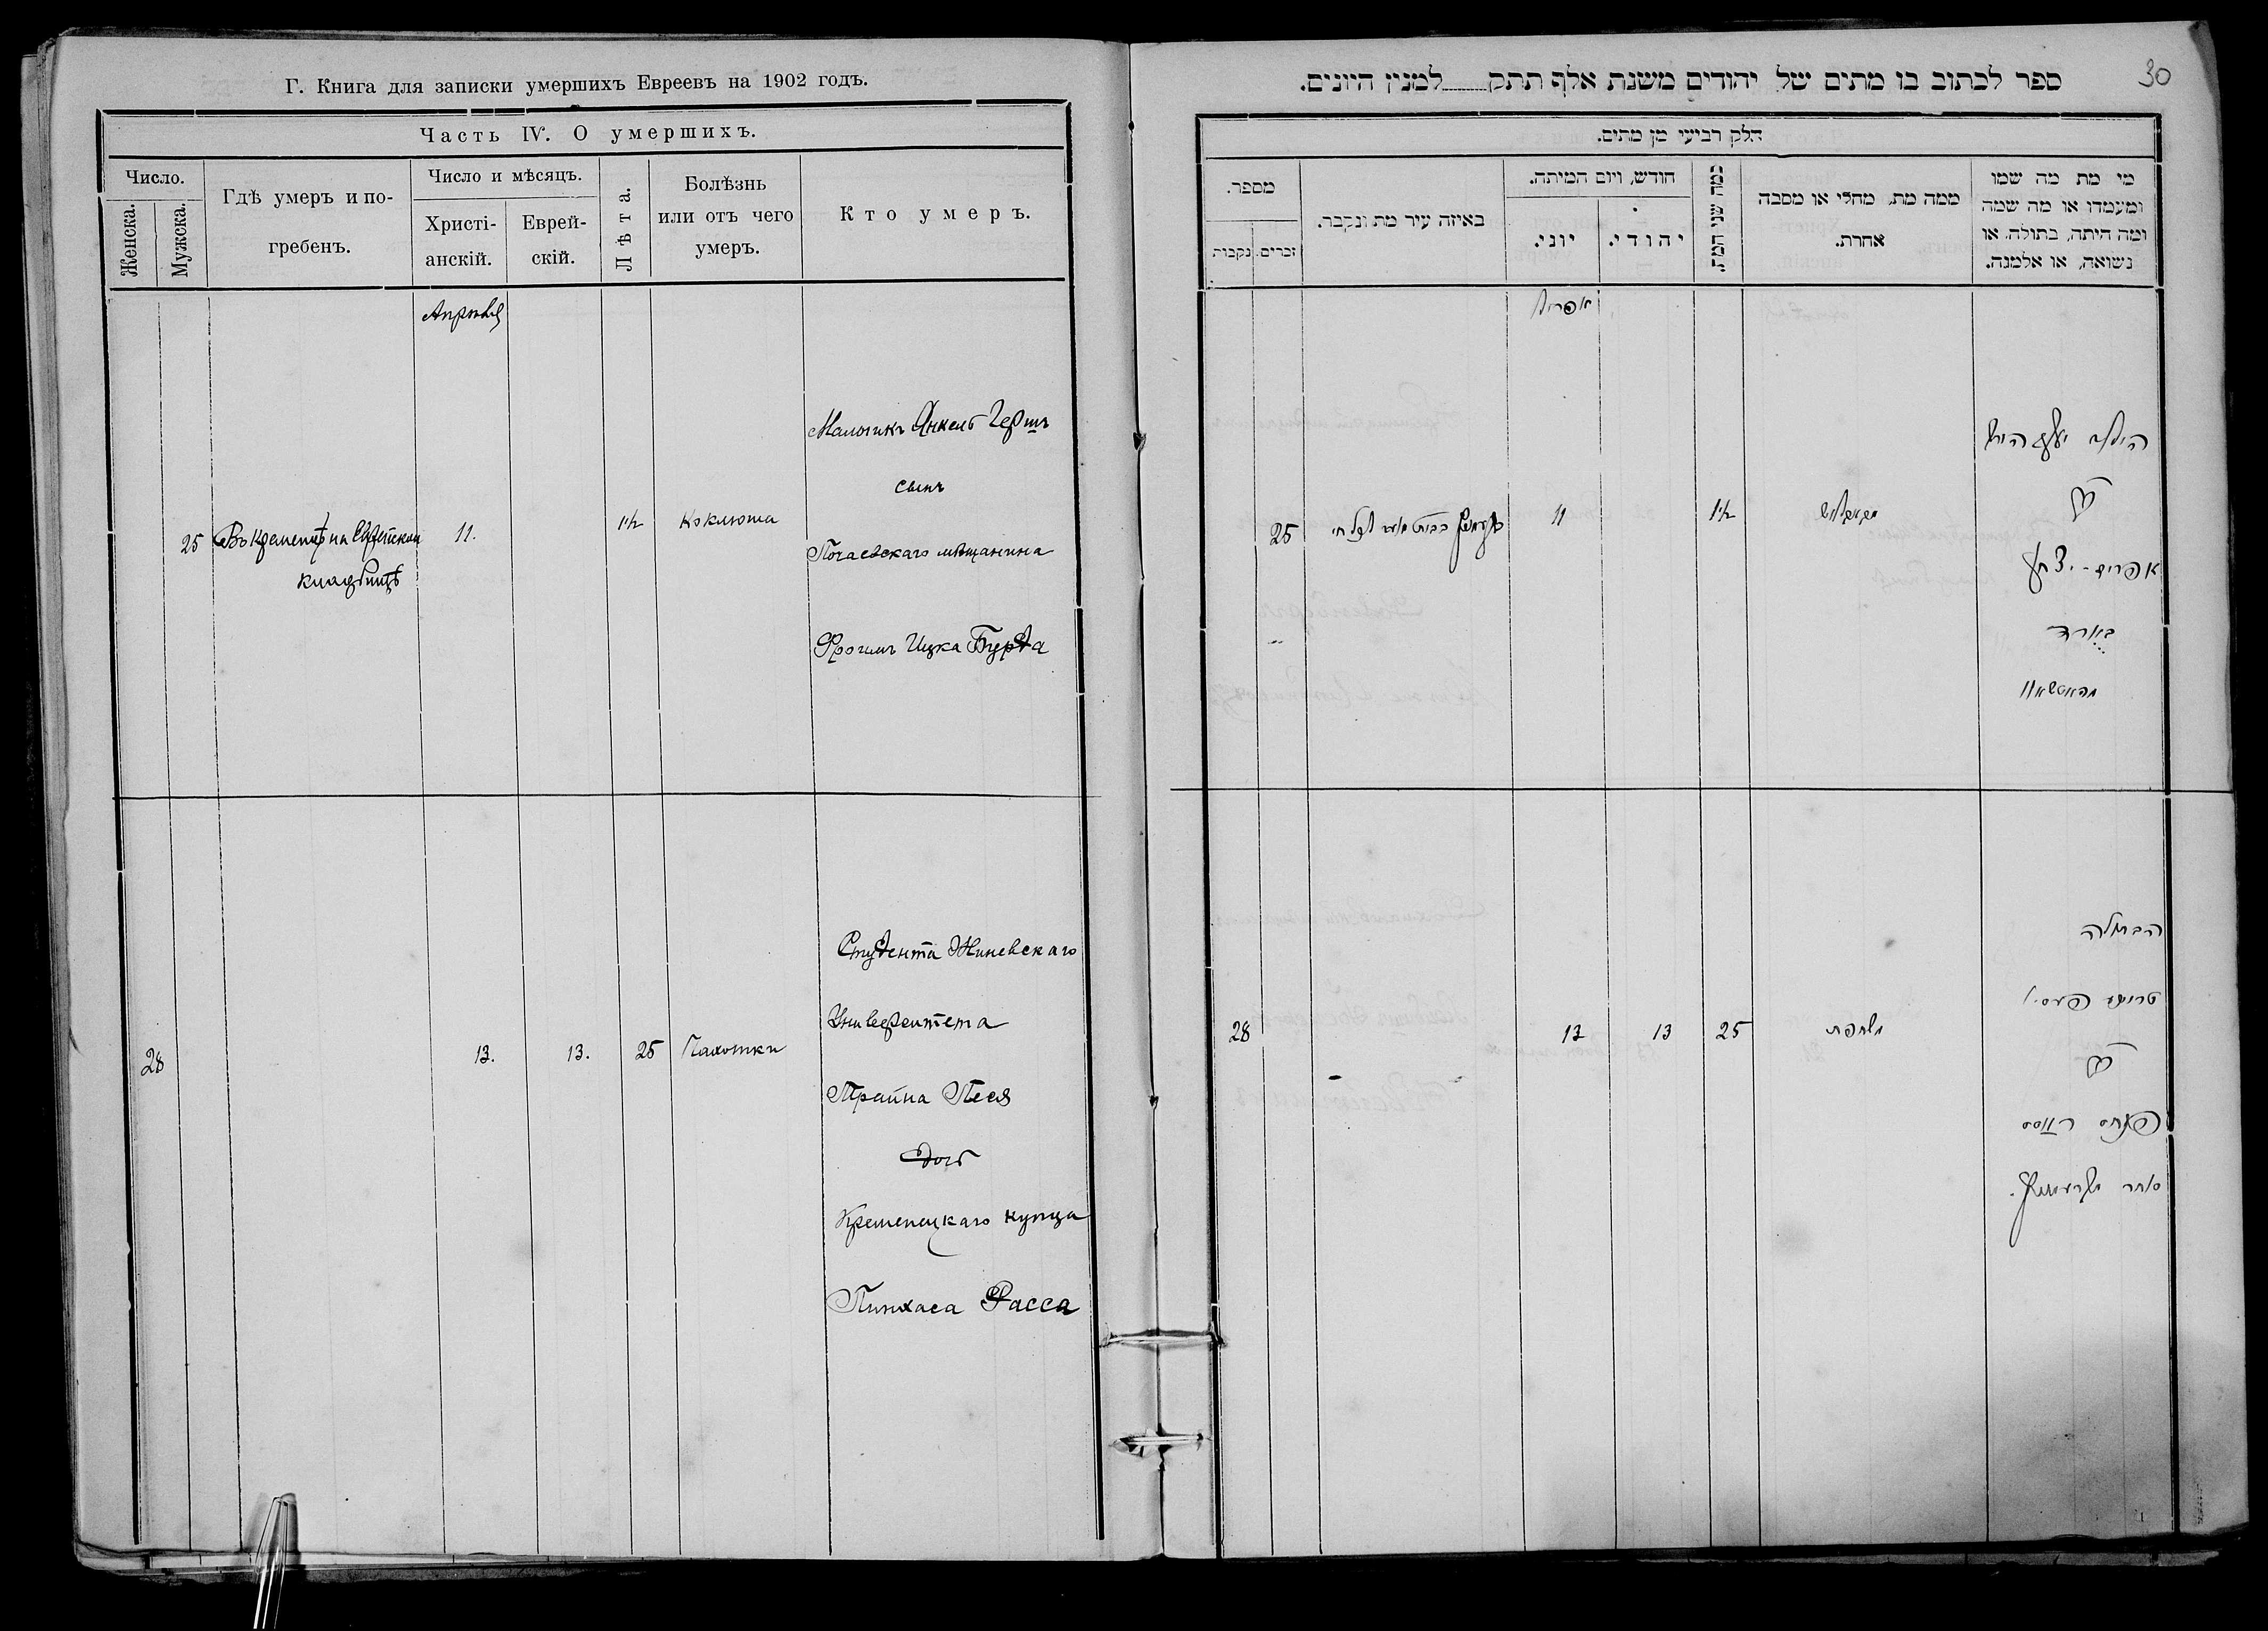 Г. Книга для записки умершихъ Евреевъ на 1902 годъ.
Часть IV. О умершихъ.
Число.
Женска.
Мужска.
Гдѣ умеръ и по-
гребенъ.
Число и мѣсяцъ.
Христі-
анскій.
Еврей-
скій.
Лѣта.
Болѣзнь
или отъ чего
умеръ.
Кто умеръ.
Апрѣль
25
Въ Кременцѣ на Еврейском
кладбищѣ
11.
1½
Коклюша
Мальчикъ Янкель Герш
сынъ
Почаевскаго мѣщанина
Фроимъ Ицка Бурда
28
13.
13.
25
Чахотки
Студента Женевскаго
Университета
Трайна Песя
дочь
Кременецкаго купца
Пинхаса Расса
30
ספר לכתוב בו מתים של יהודים משנת אלף תתק למנין היונים.
חלק רביעי מן מתים.
מספר.
זכרים.
נקבות
באיזה עיר מת ונקבר.
חודש, ויום המיתה.
יוני.
יהודי.
כמה שני המת.
ממה מת, מחלי או מסבה
אחרת.
מי מת מה שמו
ומעמדו או מה שמה
ומה היתה, בתולה, או
נשואה, או אלמנה.
אפריל
25
11
1½
הילד יעקב הירש
אפרים - יצחק
בורד
28
13
13
25
הבתולה
פנחס ראסס
סוחר